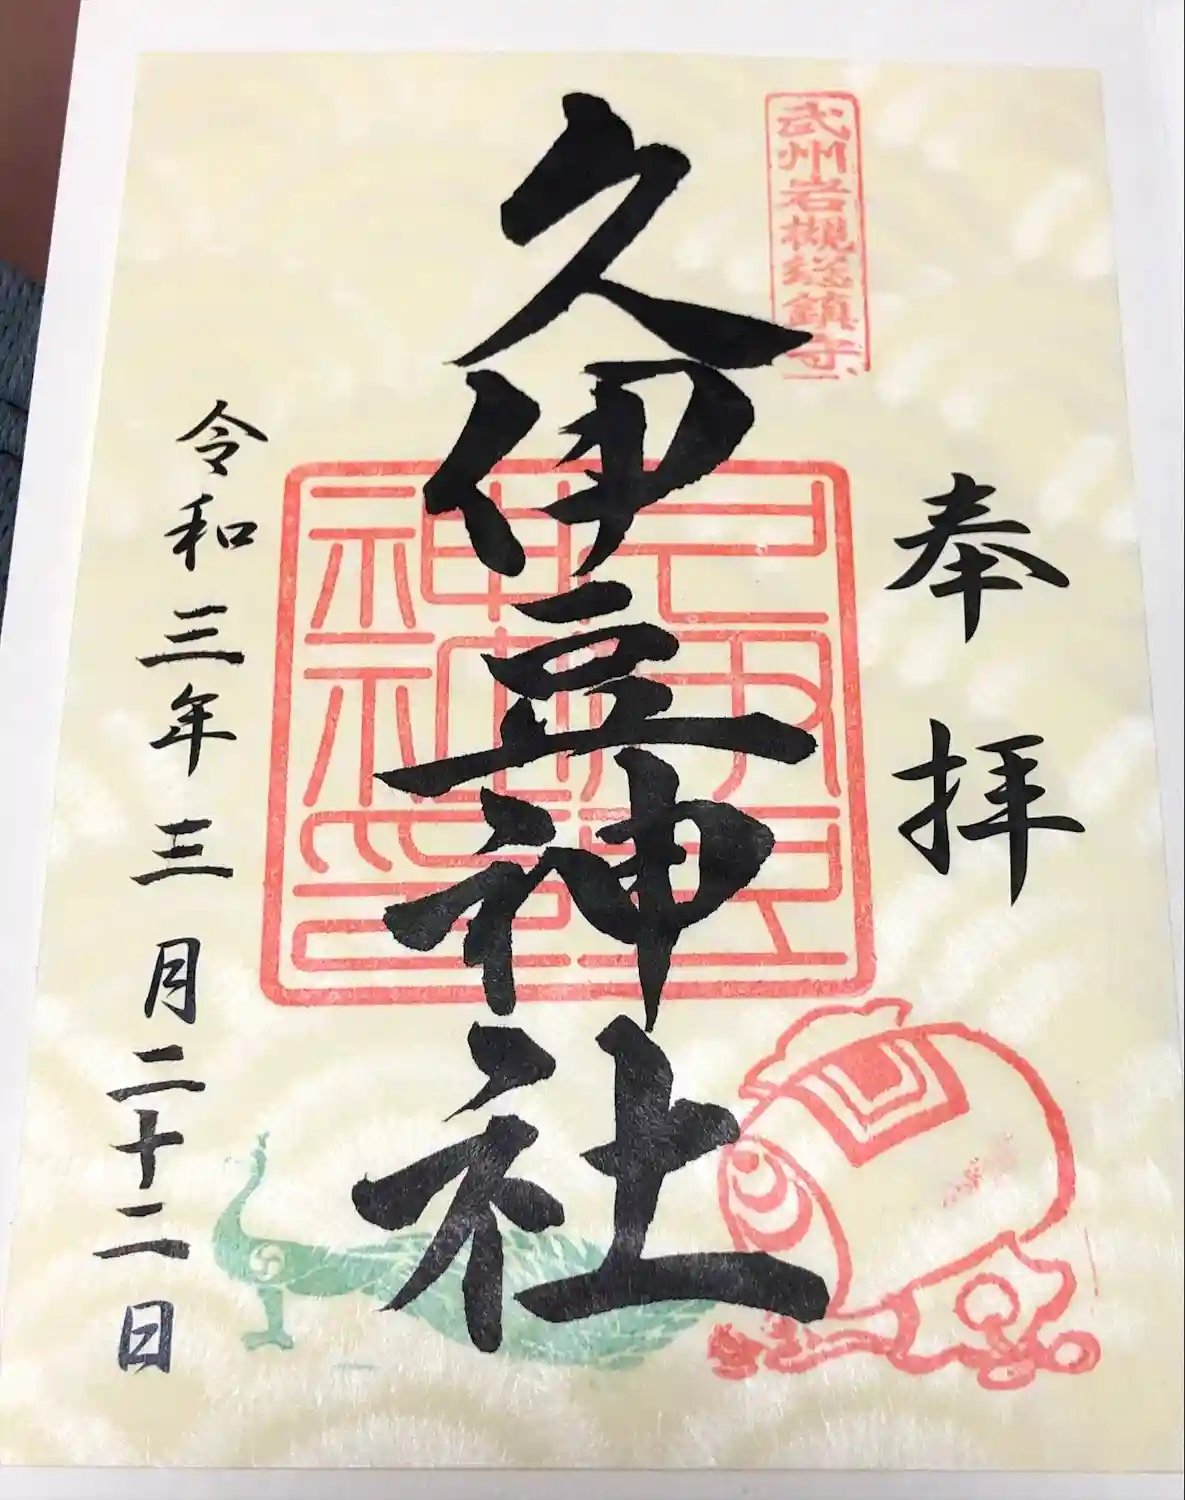 武州岩槻総鎮守
奉拝
久伊豆神社
久伊豆神社神社印
令和三年三月二十二日